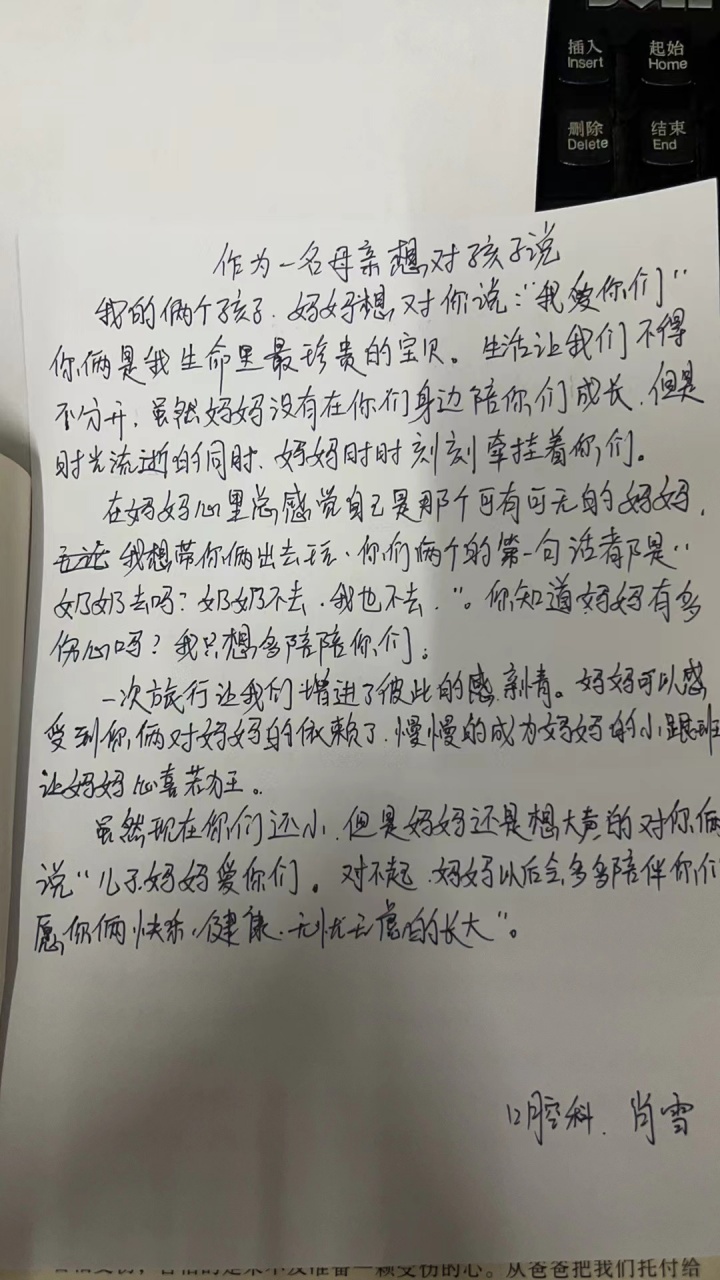 插入
Insert
起始
Home
删除
Delete
结束
End
作为一名母亲想对孩子说
我的俩个孩子.妈妈想对你说:“我爱你们”
你俩是我生命里最珍贵的宝贝。生活让我们不得
不分开.虽然妈妈没有在你们身边陪你们成长.但是
时光流逝的同时.妈妈时时刻刻牵挂着你们。
在妈妈心里总感觉自己是那个可有可无的妈妈.
我想带你俩出去玩.你们俩个的第一句话都是“
奶奶去吗?奶奶不去.我也不去.”。你知道妈妈有多
伤心吗?我只想多陪陪你们。
一次旅行让我们增进了彼此的感亲情。妈妈可以感
受到你俩对妈妈的依赖了.慢慢的成为妈妈的小跟班
让妈妈心喜若狂。
虽然现在你们还小.但是妈妈还是想大声的对你俩
说“儿子妈妈爱你们。对不起.妈妈以后会多多陪伴你们
愿你俩快乐.健康.无忧无虑的长大”。
口腔科.肖雪
一颗受伤的心。从爸爸把我们托付给